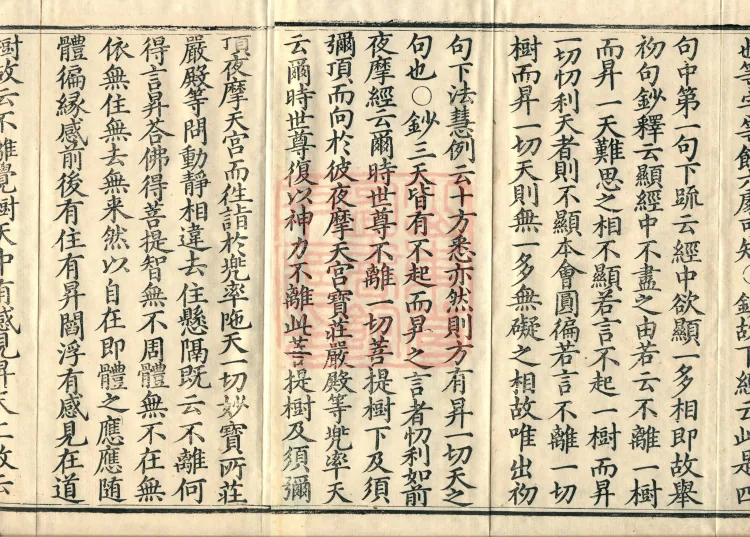 句中第一句下䟽云經中欲顯一多相即故舉
初句鈔釋云顯經中不盡之由若云不離一樹
而昇一天難思之相不顯若言不起一樹而昇
一切忉利天者則不顯本會圓徧若言不離一切
樹而昇一切天則無一多無礙之相故唯出初
句下法慧例云十方悉亦然則方有昇一切天之
句也○鈔三天皆有不起而昇之言者忉利如前
夜摩經云爾時世尊不離一切菩提樹下及須
彌頂而向於彼夜摩天宫寶莊嚴殿等兜率天
云爾時世尊復以神力不離此菩提樹及須彌
頂夜摩天宫而徃詣於兠率陁天一切妙寶所莊
嚴殿等問動靜相違去住懸隔既云不離何
得言昇荅佛得菩提智無不周體無不在無
依無住無去無来然以自在即體之應應随
體徧緣感前後有住有昇閻浮有感見在道
樹故云不離覺樹天中有感見昇天上故云